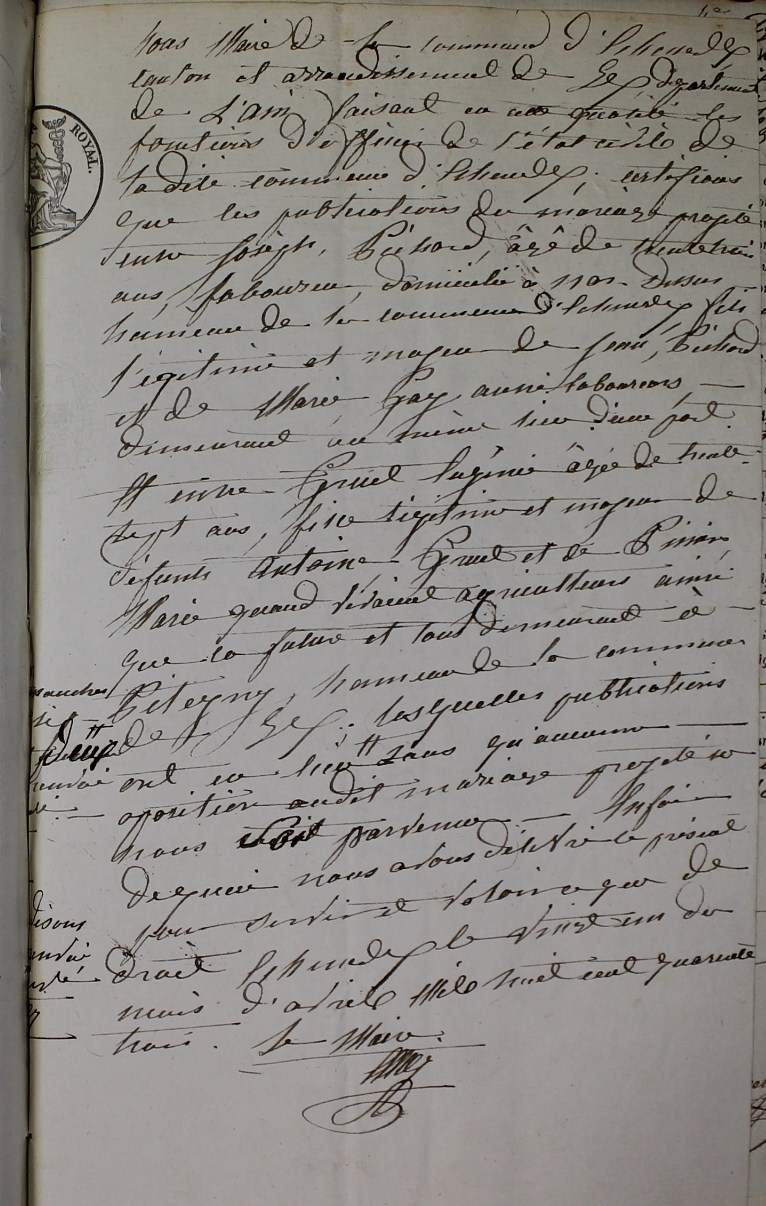 ROYAL.
Nous Maire de la commune d'Echenevex
canton et arrondissement de Gex, département
de L'ain, faisant en cette qualité les
fonctions d'officier de l'état civile de
la dite commune d'Echenevex, certifions
que les publications du mariage projeté
entre Joseph, Pichard, âgé de trente trois
ans, laboureur, domicilié à Naz-Dessus
hameau de la commune d'Echenevex fils
légitime et majeur de Pichard
et de Marie, Gay aussi laboureurs,
demeurant au même lieu d'une part.
Et entre Gruel Eugénie âgée de trente
sept ans, fille légitime et majeure de
défunts Antoine, Gruel et de
Marie quand vivaient agriculteurs ainsi
que la future et tous demeurant à
Pitegny, hameau de la commune
de Gex; lesquelles publications
ont eu lieu sans qu'aucune
oposition audit mariage projeté ne
nous soit parvenue. En foi
de quoi nous avons délivré le présent
pour servir et valoir ce que de
droit Echenevex le vingt un du
mois d'avril mil huit cent quarante
trois. Le Maire.